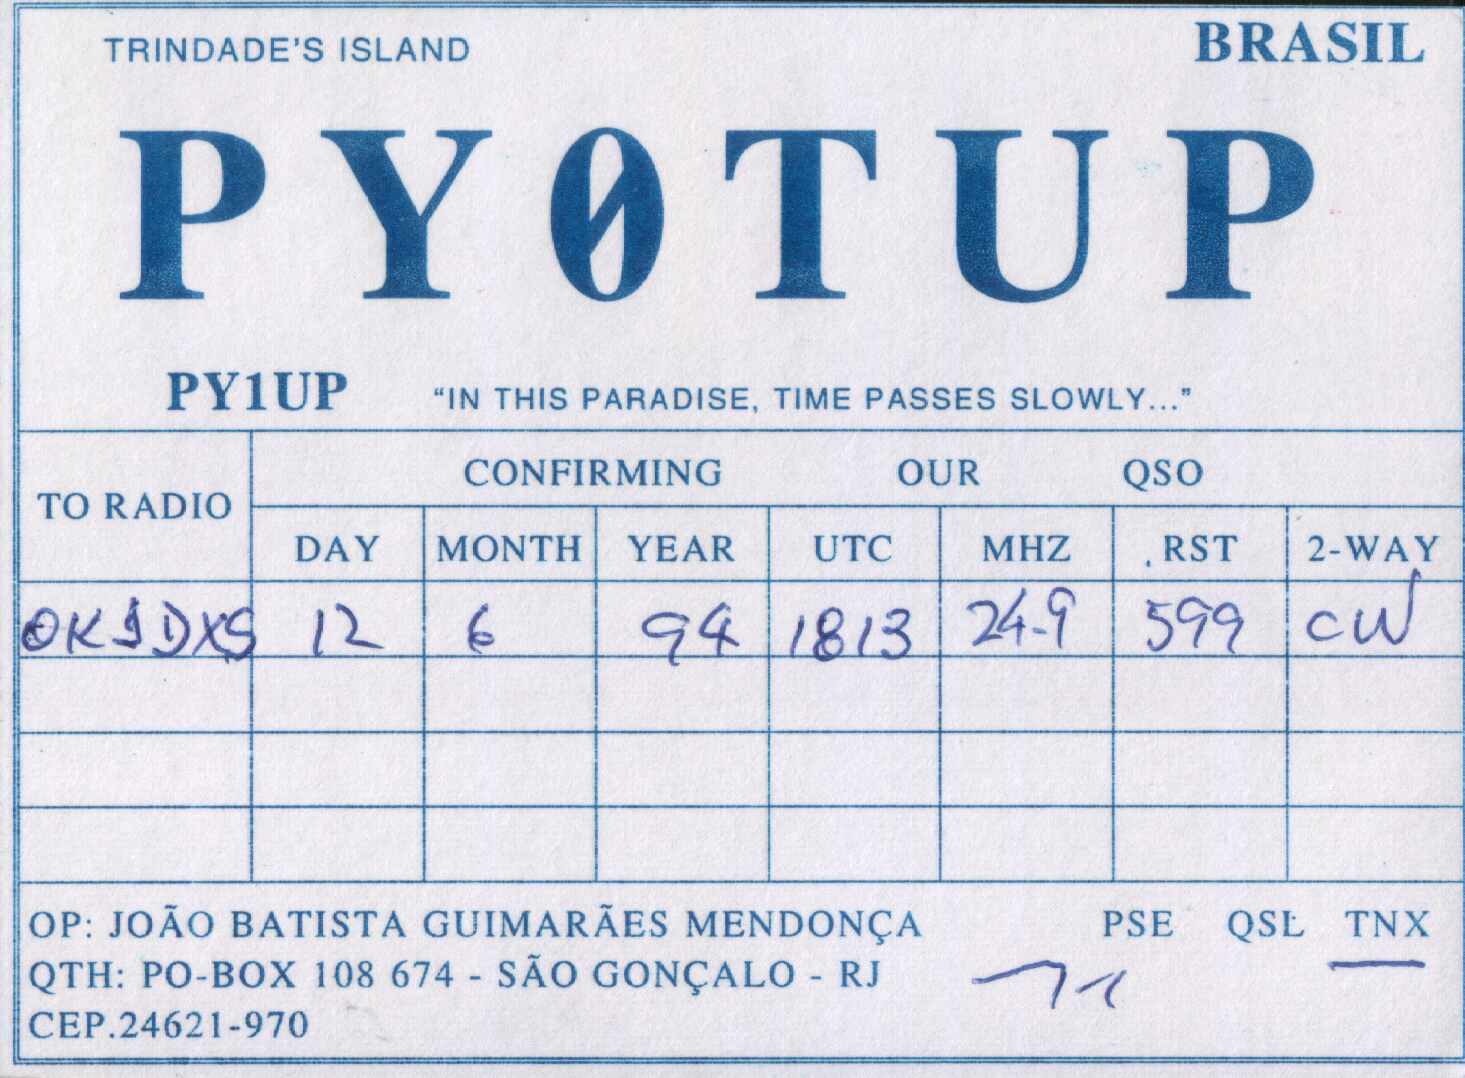 TRINDADE'S ISLAND BRASIL
PY0TUP
PY1UP "IN THIS PARADISE, TIME PASSES SLOWLY..."
TO RADIO CONFIRMING OUR QSO
DAY MONTH YEAR UTC MHZ RST 2-WAY
OK1DXS 12 6 94 1813 24.9 599 CW
OP: JOÃO BATISTA GUIMARÃES MENDONÇA PSE QSL TNX
QTH: PO-BOX 108 674 - SÃO GONÇALO - RJ
CEP.24621-970